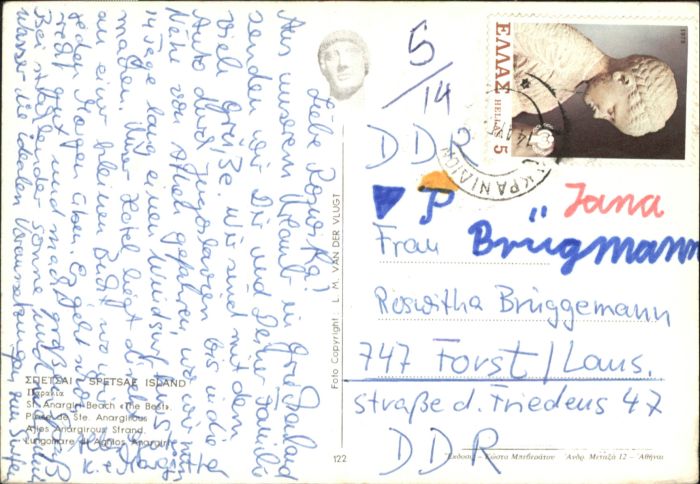 Liebe Roswitha!
Aus unserem Urlaub in Griechenland
senden wir Dir und Deiner Familie
viele Grüße. Wir sind mit dem
Auto durch Jugoslavien bis in die
Nähe von Athen gefahren, wo wir mitten
14 Tage lang einen Windsurfkurs
machen. Unser Hotel liegt direkt
an einer kleinen Bucht, wo wir
jeden Morgen üben. Es geht schon
recht gut und macht großen Spaß.
Bei strahlender Sonne und
Wasser die idealen Voraussetzungen zum Surfen
K. +
ΣΠΕΤΣΑΙ - SPETSAE ISLAND
Παραλία
St. Anargiri Beach «The Best»
Plage de Ste. Anargirous
Ajies Anargirous Strand
Lungomare di Aghios Anargiri
122
Foto Copyright: L. M. VAN DER VLUGT
5/14
ΕΛΛΑΣ
HELLAS 5
ΚΡΑΝΙΔΙΟΝ
DDR
P
Jana
Brügmann
Frau
Roswitha Brüggemann
747 Forst/Laus.
Straße d. Friedens 47
DDR
Έκδοσις - Κώστα Μπιθεράτου Ανδρ. Μεταξά 12 - Αθήναι